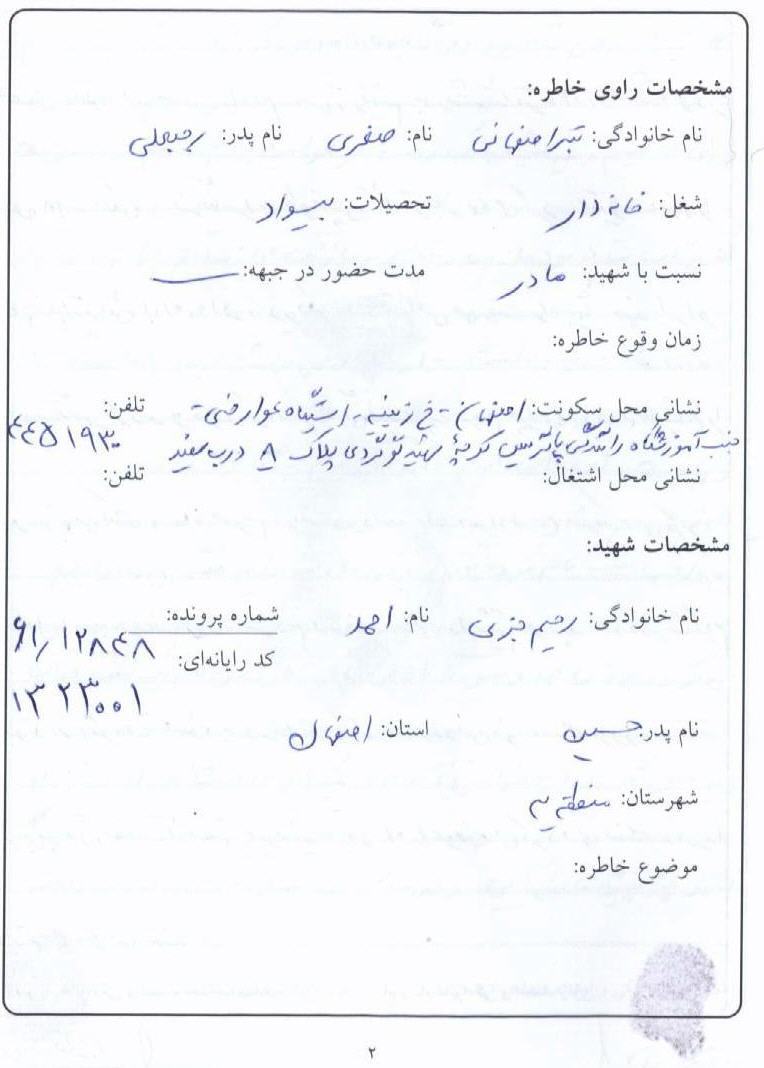 مشخصات راوی خاطره:
نام خانوادگی: تیر اصفهانی نام: صغری نام پدر: رجبعلی
شغل: خانه دار تحصیلات: بیسواد
نسبت با شهید: مادر مدت حضور در جبهه: —
زمان وقوع خاطره:
نشانی محل سکونت: اصفهان - خ زینبیه - ایستگاه عوارضی - تلفن:
جنب آموزشگاه رانندگی پاتریس کوچهٔ شهید پلاک ۸ درب سفید ۴۴۵۱۹۳۰
نشانی محل اشتغال: تلفن:
مشخصات شهید:
نام خانوادگی: رحیم جزی نام: احمد شماره پرونده:
۶۱/۱۲۸۴۸
کد رایانه‌ای:
۱۳۲۳۰۰۱
نام پدر: حسین استان: اصفهان
شهرستان: منطقه یک
موضوع خاطره:
۲